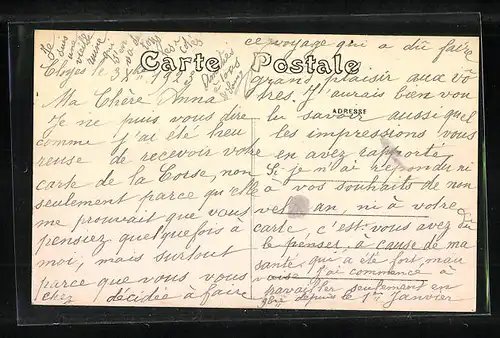 Carte Postale
ADRESSE
Cloyes le 3
Ma Chère Anna
Je ne puis vous dire
comme j'ai été heu
reuse de recevoir votre
carte de la Corse, non
seulement parce qu'elle
me prouvait que vous
pensiez quelquefois à
moi, mais surtout
parce que vous vous
êtes décidée à faire
ce voyage qui a dû faire
grand plaisir aux vô
tres. J'aurais bien vou
lu savoir aussi quel
les impressions vous
en avez rapporté.
Si je n'ai répondu ni
à vos souhaits de nou
vel an, ni à votre
carte, c'est vous avez dû
le penser, à cause de ma
santé qui a été fort mau
vaise. J'ai commencé à
travailler seulement en
depuis le 1er Janvier
Je suis une vieille